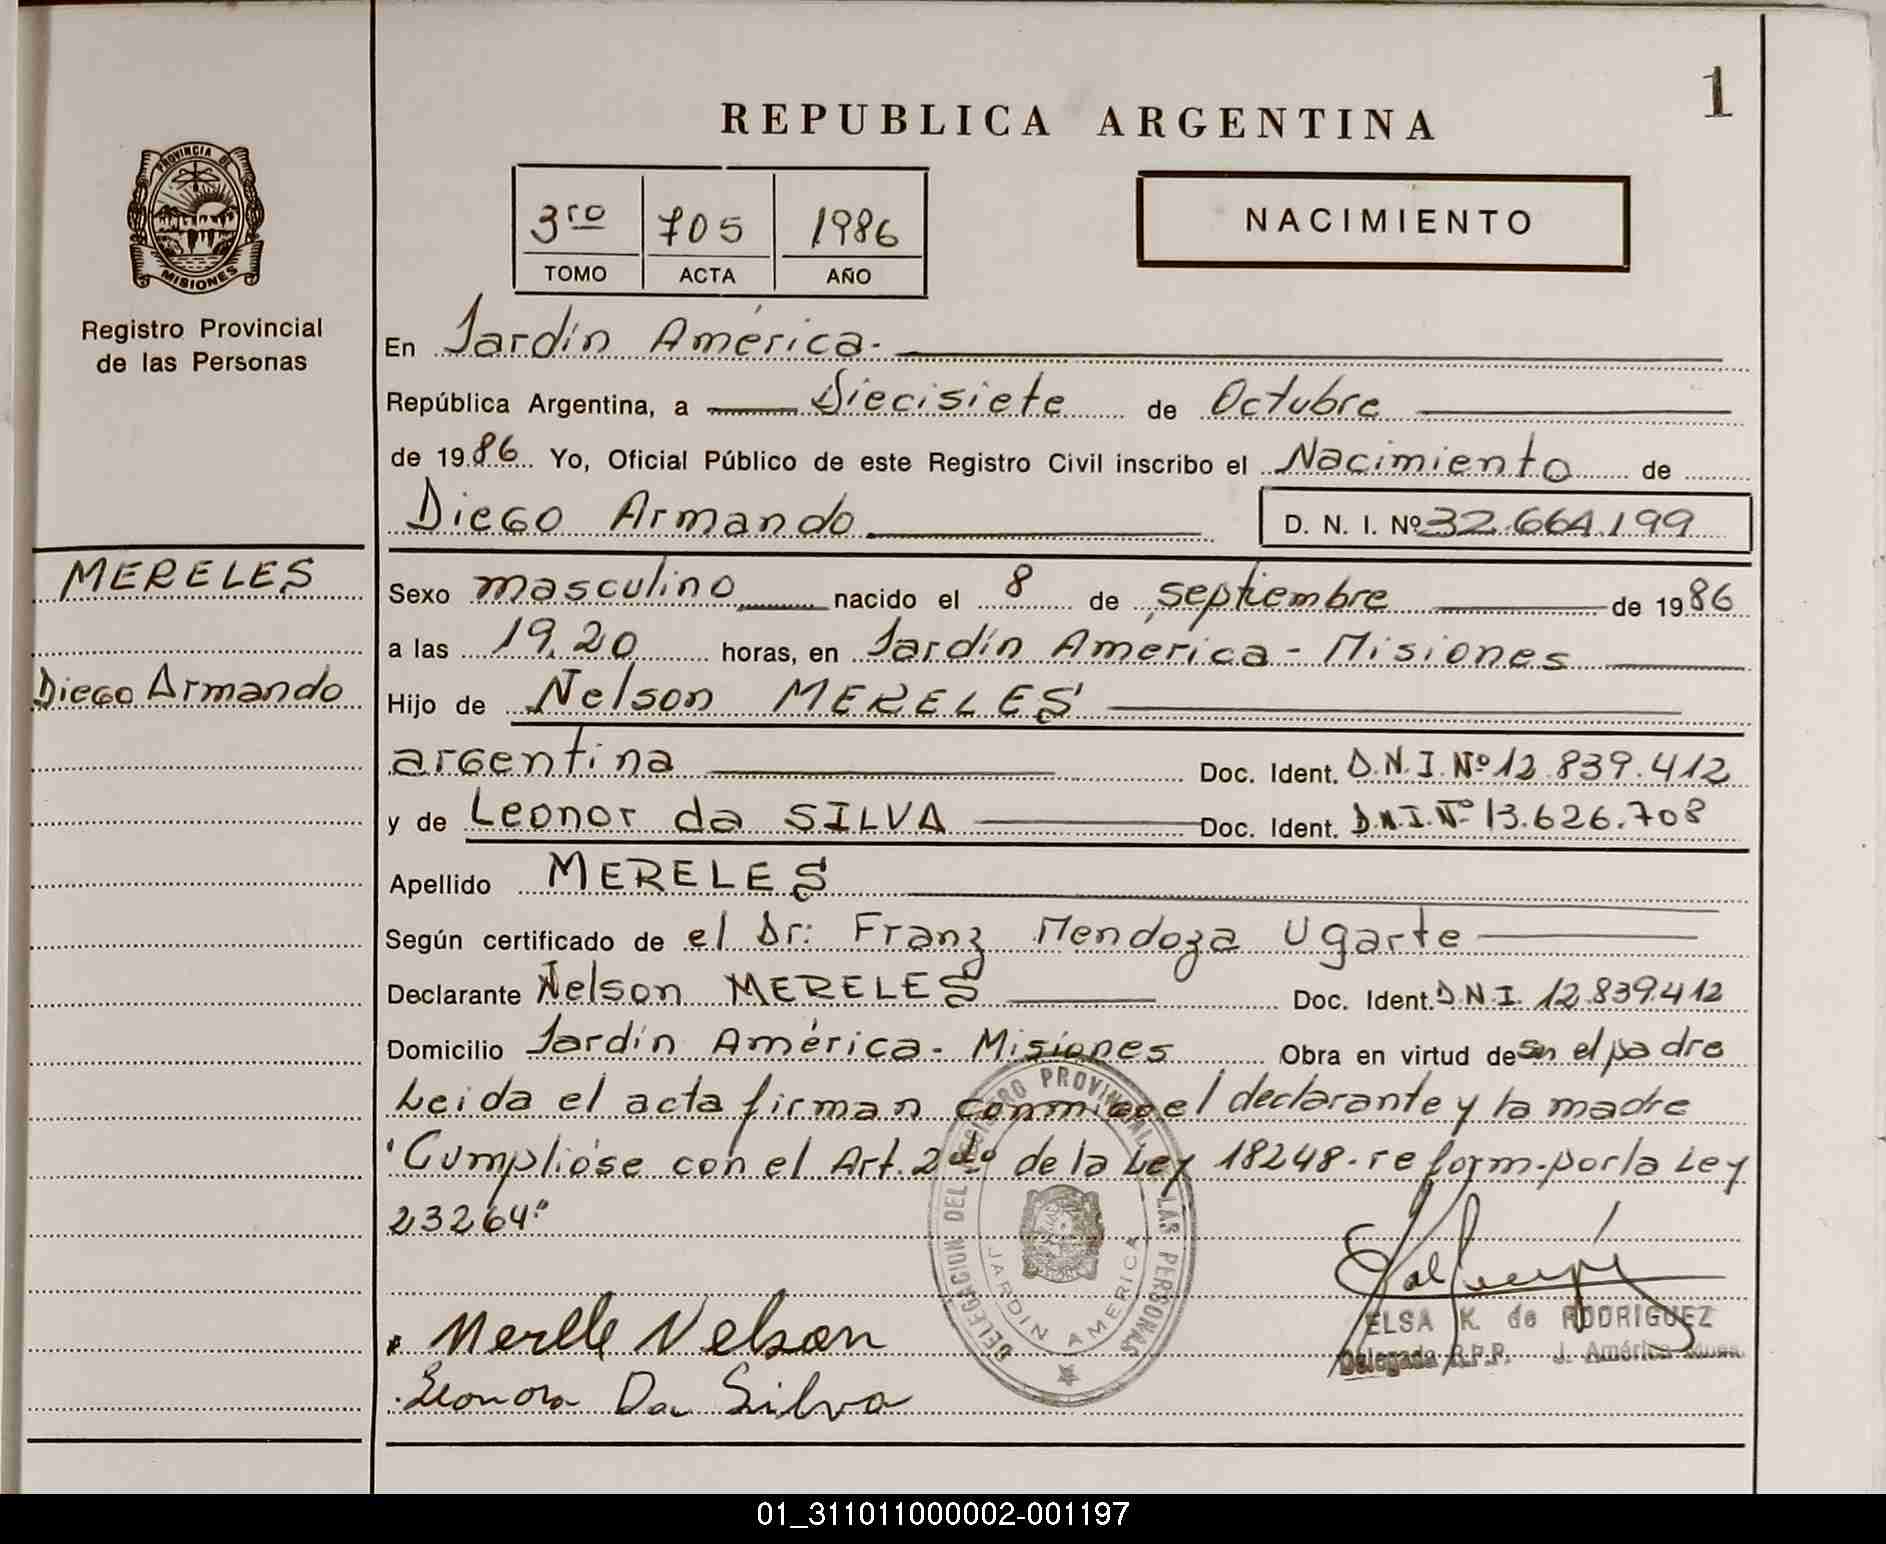 1
REPUBLICA ARGENTINA
PROVINCIA DE
MISIONES
Registro Provincial
de las Personas
3ro 705 1986
TOMO ACTA AÑO
NACIMIENTO
En Jardín América.
República Argentina, a Diecisiete de Octubre
de 1986 Yo, Oficial Público de este Registro Civil inscribo el Nacimiento de
Diego Armando D. N. I. Nº 32.664.199
MERELES
Diego Armando
Sexo masculino nacido el 8 de septiembre de 1986
a las 19,20 horas, en Jardín América - Misiones
Hijo de Nelson MERELES
argentina Doc. Ident. D.N.I. Nº 12.839.412
y de Leonor da SILVA Doc. Ident. D.N.I. Nº 13.626.708
Apellido MERELES
Según certificado de el Dr: Franz Mendoza Ugarte
Declarante Nelson MERELES Doc. Ident. D.N.I. 12.839.412
Domicilio Jardín América - Misiones Obra en virtud de ser el padre
Leida el acta firman conmigo el declarante y la madre
"Cumplióse con el Art. 2do de la Ley 18248-reform-por la Ley
23264"
DELEGACION DEL REGISTRO PROVINCIAL DE LAS PERSONAS
JARDIN AMERICA
Merele Nelson
Leonora Da Silva
ELSA K. de RODRIGUEZ
Delegada R.P.P. J. América Mnes.
01_311011000002-001197